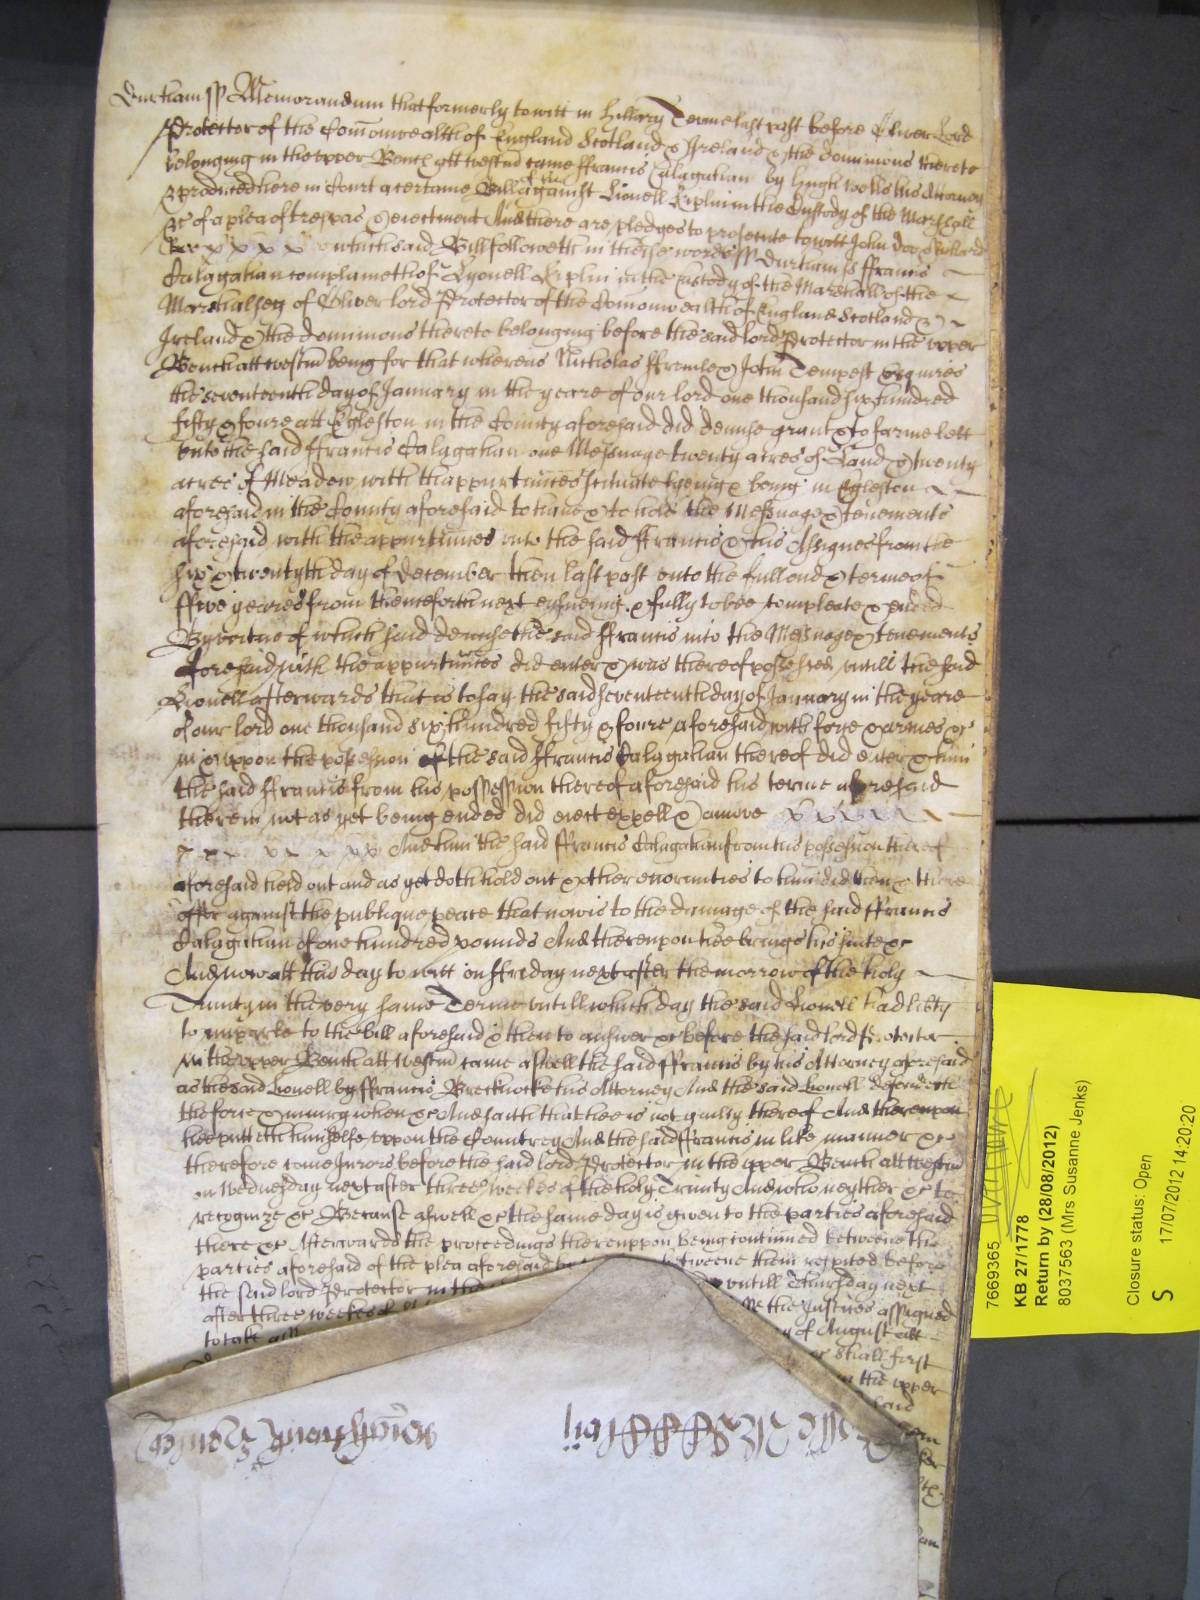 Durham ss Memorandum that formerly to witt in Hillary Terme last past before Oliver Lord
Protector of the Comonwealth of England Scotland & Ireland & the dominions thereto
belonging in the upper Bench att Westm came ffrancis Calaghan by Hugh his Attorney
& produced here in Court a certaine Bill of his against Lionell in the Custody of the Marshall
&c of a plea of trespas & eiectment And there are pledges to prosecute to witt John Doo & Richard
Roo x x x x x which said Bill followeth in theise words ss Durham ss ffrancis
Calaghan complaineth of Lyonell in the custody of the Marshall of the
Marshalsey of Oliver lord Protector of the Comonwealth of England Scotland &
Ireland & the dominions thereto belonging before the said lord Protector in the upper
Bench att Westm being for that whereas Nicholas & John Tempest Esquires
the seventeenth day of January in the yeare of our lord one thousand six hundred
fifty & foure att Egleston in the County aforesaid did demise grant & to farme lett
unto the said ffrancis Calaghan one Messuage twenty acres of Land & twenty
acres of Meadow with thappurtunces scituate lyeing & being in Egleston
aforesaid in the County aforesaid to have & to hold the Messuage & tenements
aforesaid with the appurtunces unto the said ffrancis & his Assignes from the
six & twentyth day of December then last past unto the full end & terme of
ffive yeares from thenceforth next ensueing & fully to bee compleate & ended
By vertue of which said demise the said ffrancis into the Messuage & tenements
aforesaid with the appurtunces did enter & was thereof possessed untill the said
Lionell afterwards that is to say the said seventeenth day of January in the yeare
of our lord one thousand six hundred fifty & foure aforesaid with force & armes &c
in & uppon the possession of the said ffrancis Calaghan thereof did enter & him
the said ffrancis from his possession thereof aforesaid his terme aforesaid
therein not as yet being ended did eiect expell & amove x x x x x
x x x x x x x And him the said ffrancis Calaghan from his possession thereof
aforesaid held out and as yet doth hold out & other enormities to him did then & there
offer against the publique peace that now is to the damage of the said ffrancis
Calaghan of one hundred pounds And thereupon hee brings his suite &c
And now att this day to witt on ffriday next after the morrow of the holy
Trinity in the very same Terme untill which day the said Lionell had liberty
to imparle to the bill aforesaid & then to answer &c before the said lord Protector
in the upper Bench att Westm came aswell the said ffrancis by his Attorney aforesaid
as the said Lionell by ffrancis Brecknocke his Attorney And the said Lionell defendeth
the force & iniury when &c And saith that hee is not guilty thereof And thereupon
hee putteth himselfe uppon the Countrey And the said ffrancis in like manner &c
therefore come Jurors before the said lord Protector in the upper Bench att Westm
on Wednesday next after three weekes of the holy Trinity And who neyther &c to
recognize &c Because aswell &c the same day is given to the parties aforesaid
there &c Afterwards the proceedings thereuppon being continued betweene the
parties aforesaid of the plea aforesaid betweene them respited before
the said lord Protector in the untill Thursday next
after three weekes of the Justices assigned
to take of August att
shall first
in the upper
said
7669365
KB 27/1778
Return by (28/08/2012)
8037563 (Mrs Susanne Jenks)
Closure status: Open
S
17/07/2012 14:20:20